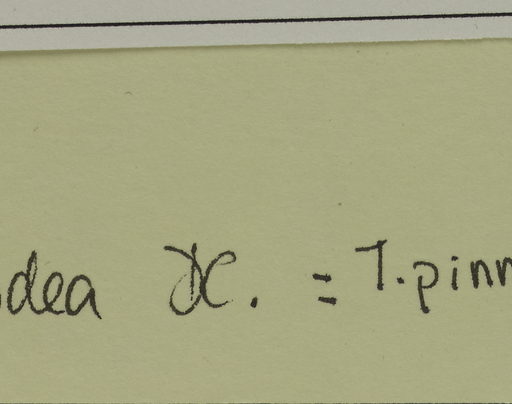 dea DC. = T. pinn